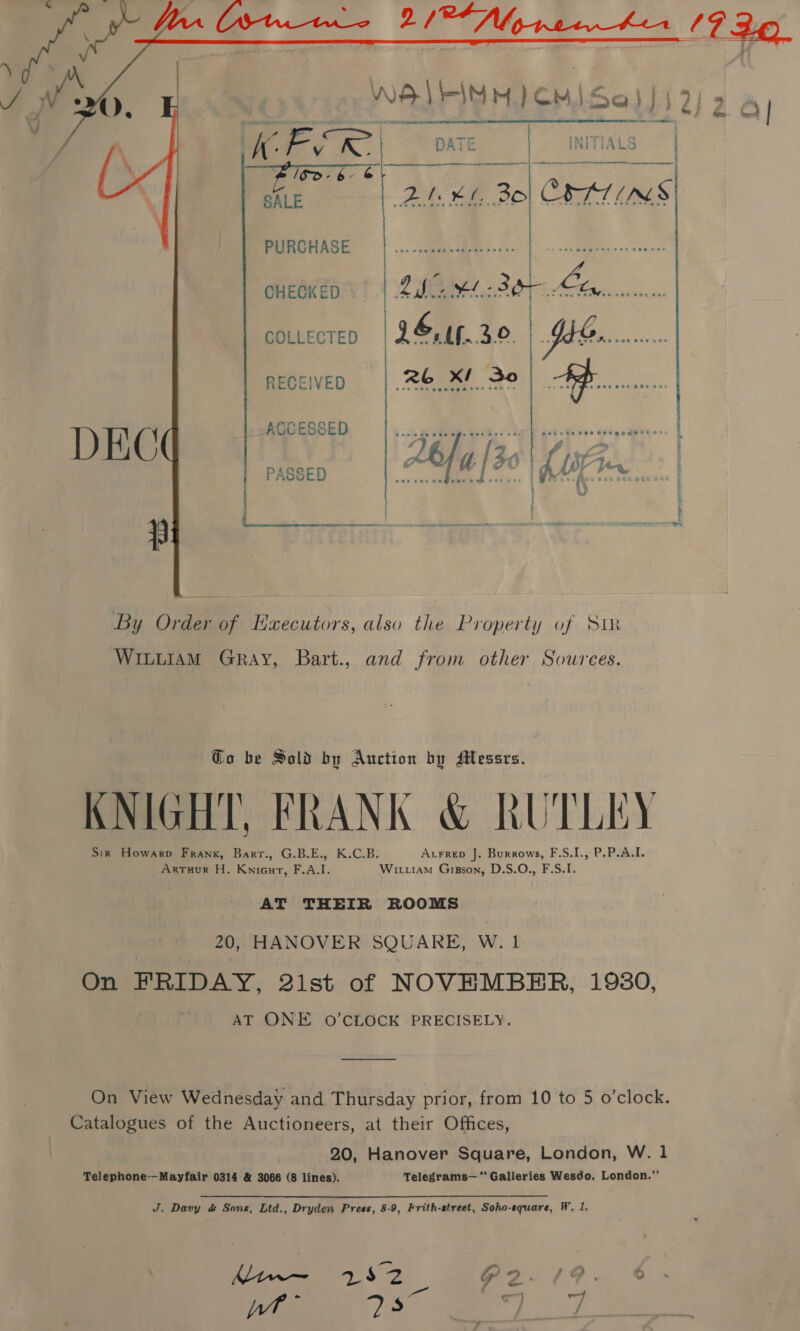 21st November 1930
20.
K.F & R. DATE INITIALS
£150-6-6
SALE 21.XI.30
PURCHASE
CHECKED
COLLECTED 26.11.30.
RECEIVED 26 XI 30
ACCESSED
DEC
PASSED 26/11/30
By Order of Executors, also the Property of SIR
WILLIAM GRAY, Bart., and from other Sources.
To be Sold by Auction by Messrs.
KNIGHT, FRANK & RUTLEY
SIR HOWARD FRANK, BART., G.B.E., K.C.B. ALFRED J. BURROWS, F.S.I., P.P.A.I.
ARTHUR H. KNIGHT, F.A.I. WILLIAM GIBSON, D.S.O., F.S.I.
AT THEIR ROOMS
20, HANOVER SQUARE, W. 1
On FRIDAY, 21st of NOVEMBER, 1930,
AT ONE O'CLOCK PRECISELY.
On View Wednesday and Thursday prior, from 10 to 5 o'clock.
Catalogues of the Auctioneers, at their Offices,
20, Hanover Square, London, W. 1
Telephone—Mayfair 0314 & 3066 (8 lines). Telegrams—"Galleries Wesdo, London."
J. Davy & Sons, Ltd., Dryden Press, 8-9, Frith-street, Soho-square, W. 1.
252
75 7 7